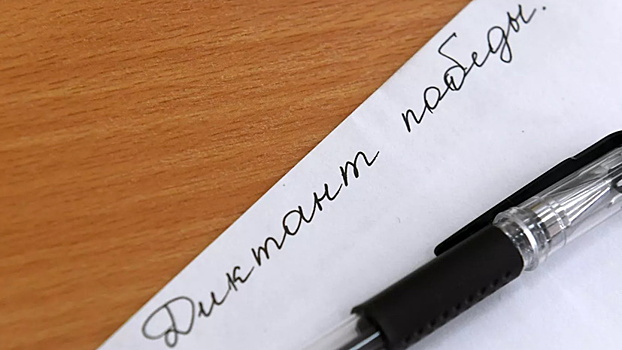 Диктант победы.